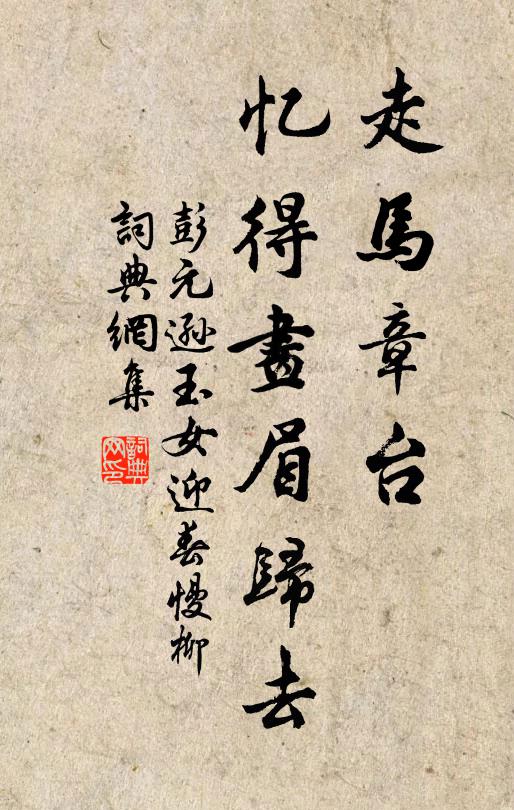 走馬章台
忆得畫眉歸去
彭元遜玉女迎春慢柳
詞典網集
詞典网印